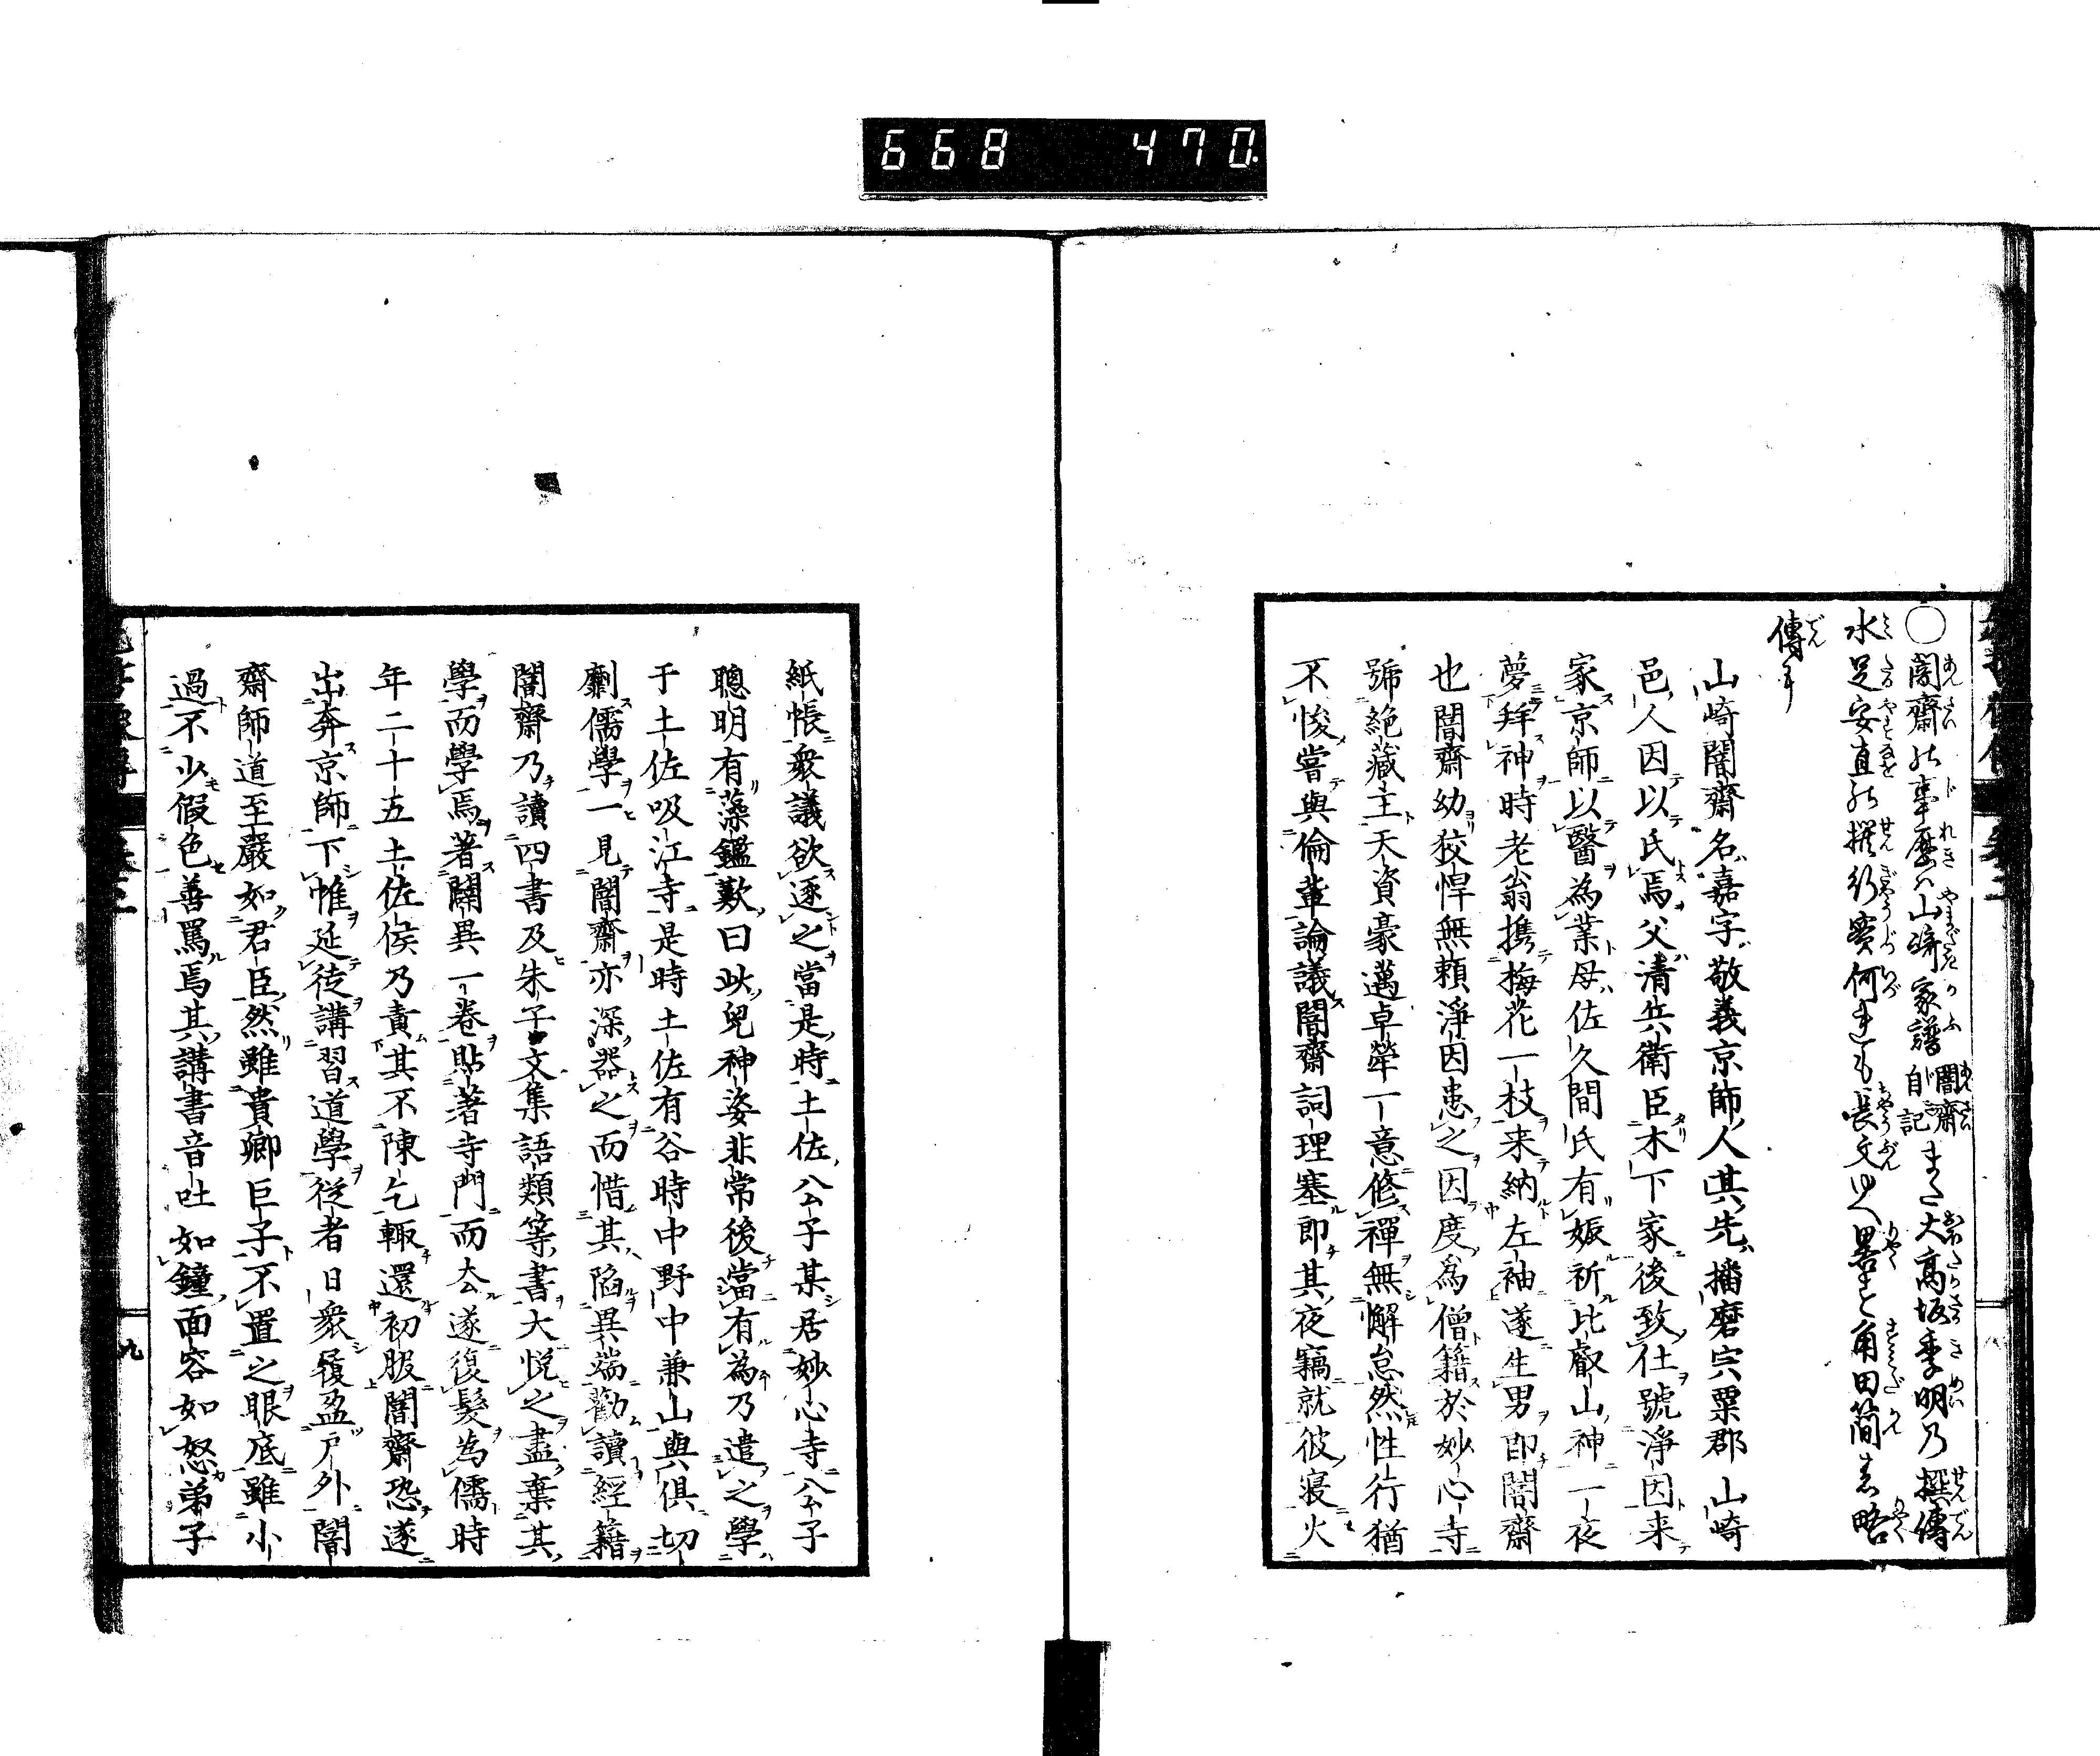 668 470
○闇齋の事歴ハ山崎家譜闇齋自記また大高坂季明乃撰傳
水足安直の撰行實何れも長文ゆへ畧す角田簡が略
傳に
山崎闇齋名嘉字敬義京師人其先播磨宍粟郡山崎
邑人因以氏焉父清兵衛臣木下家後致仕號淨因来
家京師以醫為業母佐久間氏有娠祈比叡山神一夜
夢拜神時老翁携梅花一枝来納左袖遂生男即闇齋
也闇齋幼狡悍無頼淨因患之因度為僧籍於妙心寺
號絶藏主天資豪邁卓犖一意修禪無懈怠然性行猶
不悛甞與倫輩論議闇齋詞理塞即其夜竊就彼寢火
紙帳衆議欲逐之當是時土佐公子某居妙心寺公子
聰明有藻鑑歎曰此兒神姿非常後當有為乃遣之學
于土佐吸江寺是時土佐有谷時中野中兼山與倶切
劘儒學一見闇齋亦深器之而惜其陷異端勸讀經籍
闇齋乃讀四書及朱子文集語類等書大悦之盡棄其
學而學焉著闢異一巻貼著寺門而去遂復髮為儒時
年二十五土佐侯乃責其不陳乞輙還初服闇齋恐遂
出奔京師下帷延徒講習道學從者日衆屨盈戸外闇
齋師道至嚴如君臣然雖貴卿巨子不置之眼底雖小
過不少假色善罵焉其講書音吐如鐘面容如怒弟子
九